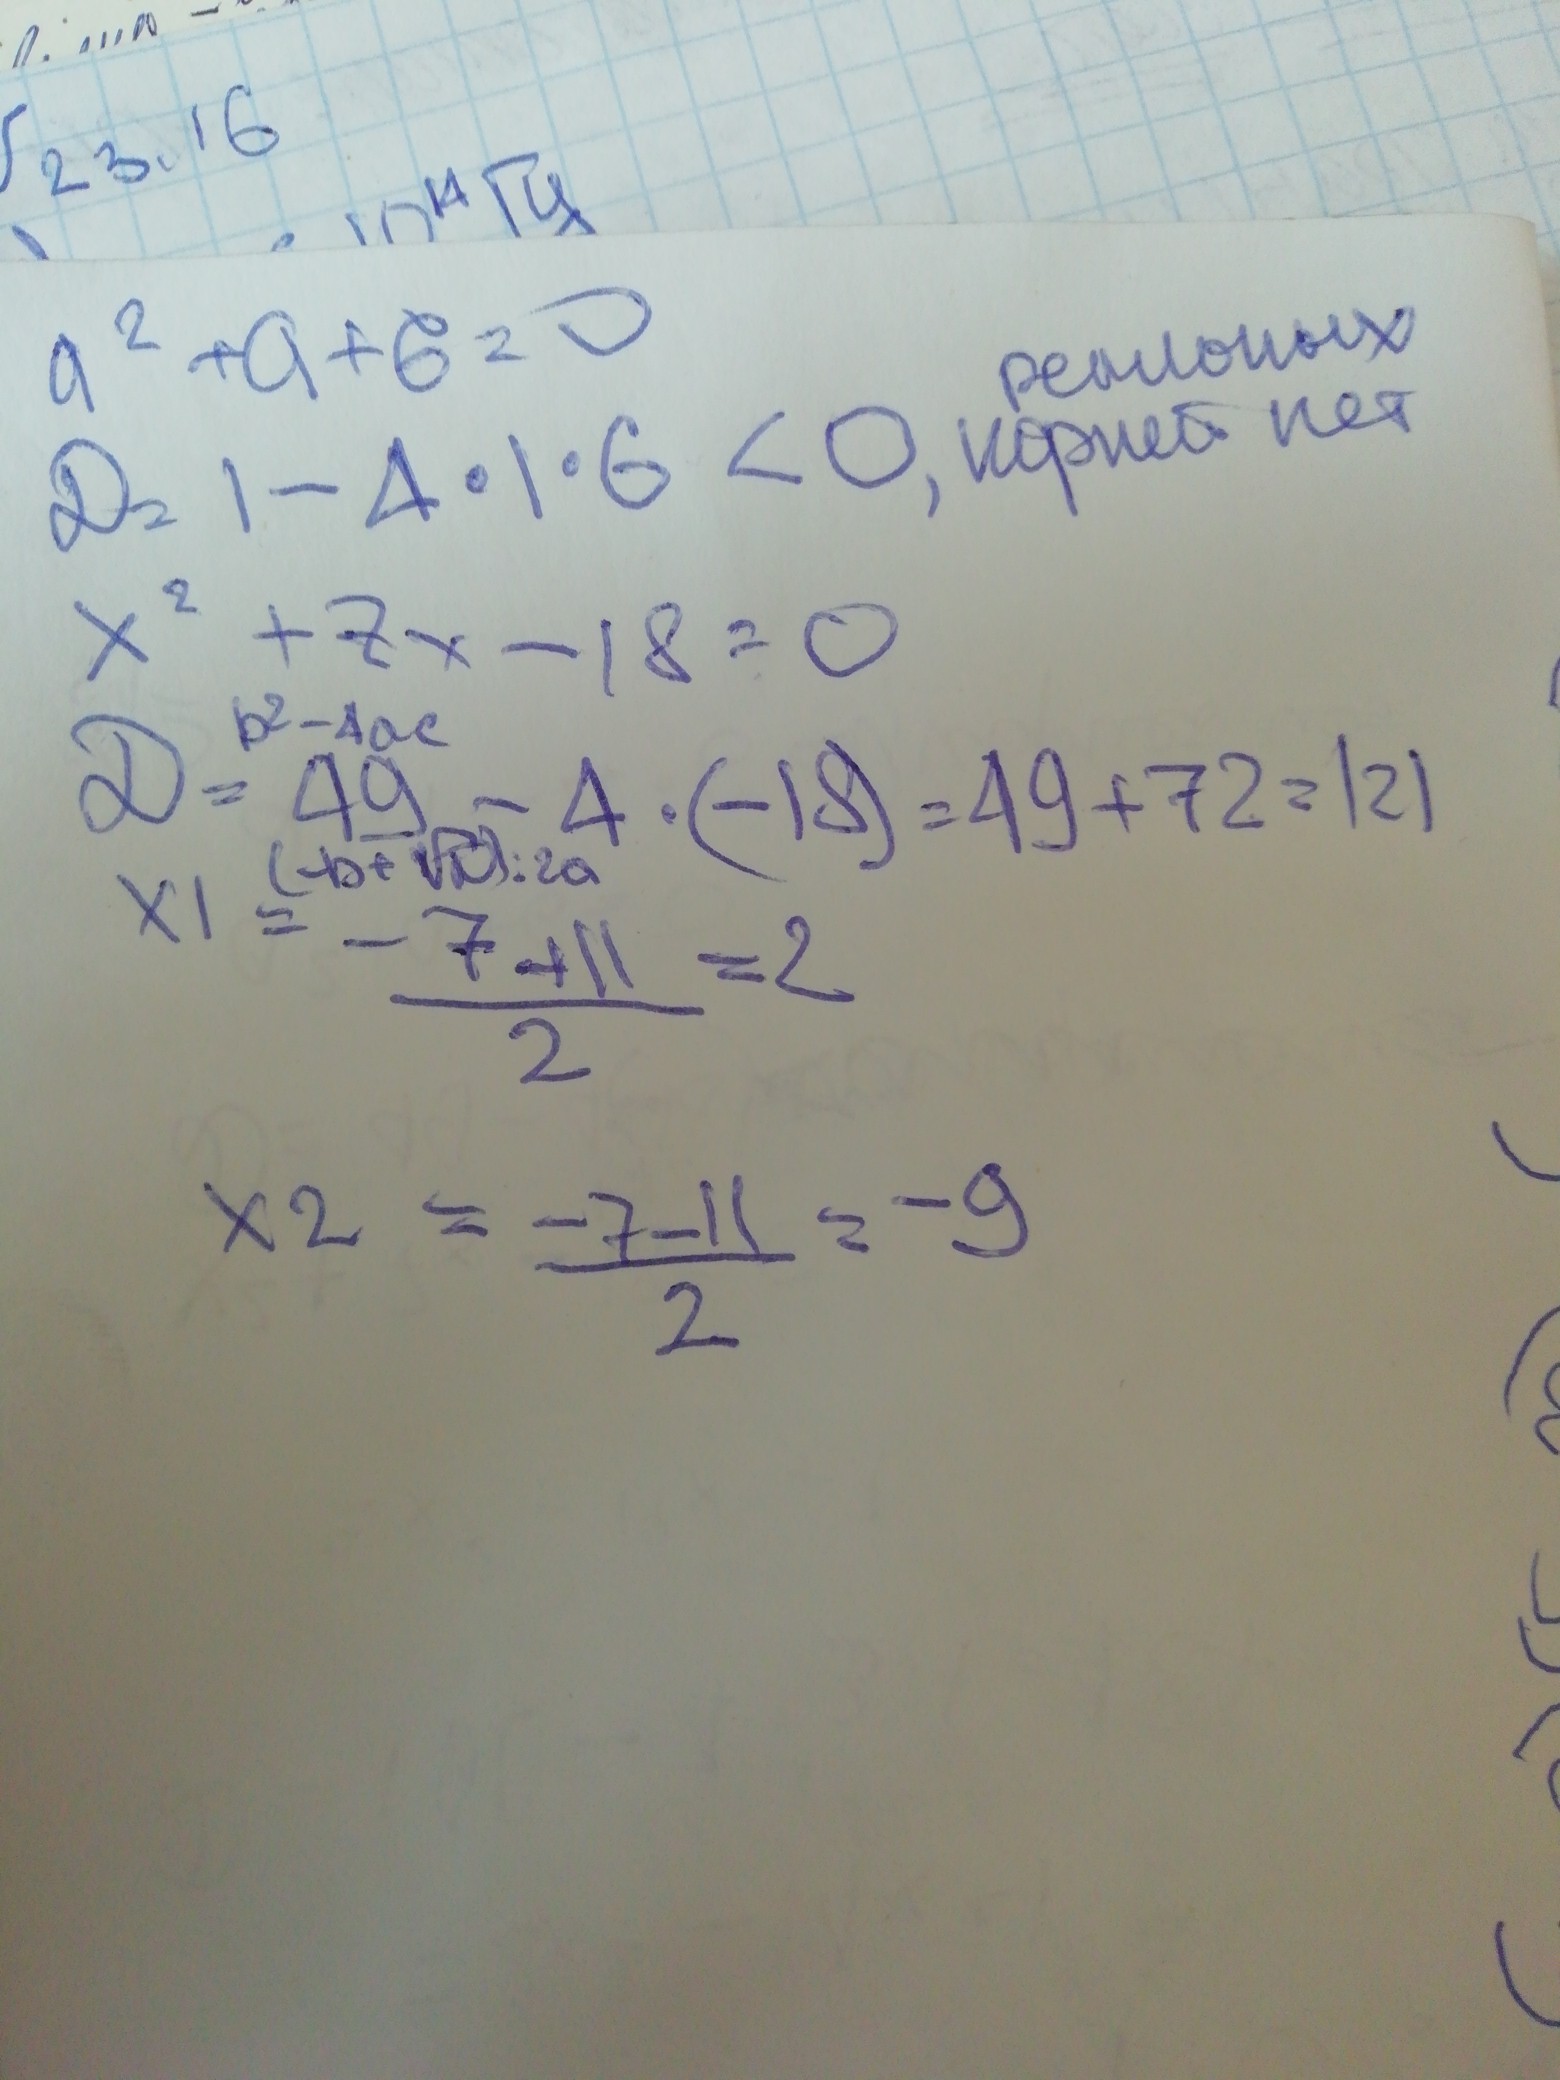 23.16
10¹⁴ Гц
a² + a + 6 = 0
D = 1 - 4 · 1 · 6 < 0, реальных корней нет
x² + 7x - 18 = 0
b² - 4ac
D = 49 - 4 · (-18) = 49 + 72 = 121
(-b + √D) : 2a
x1 = -7 + 11 = 2
2
x2 = -7 - 11 = -9
2